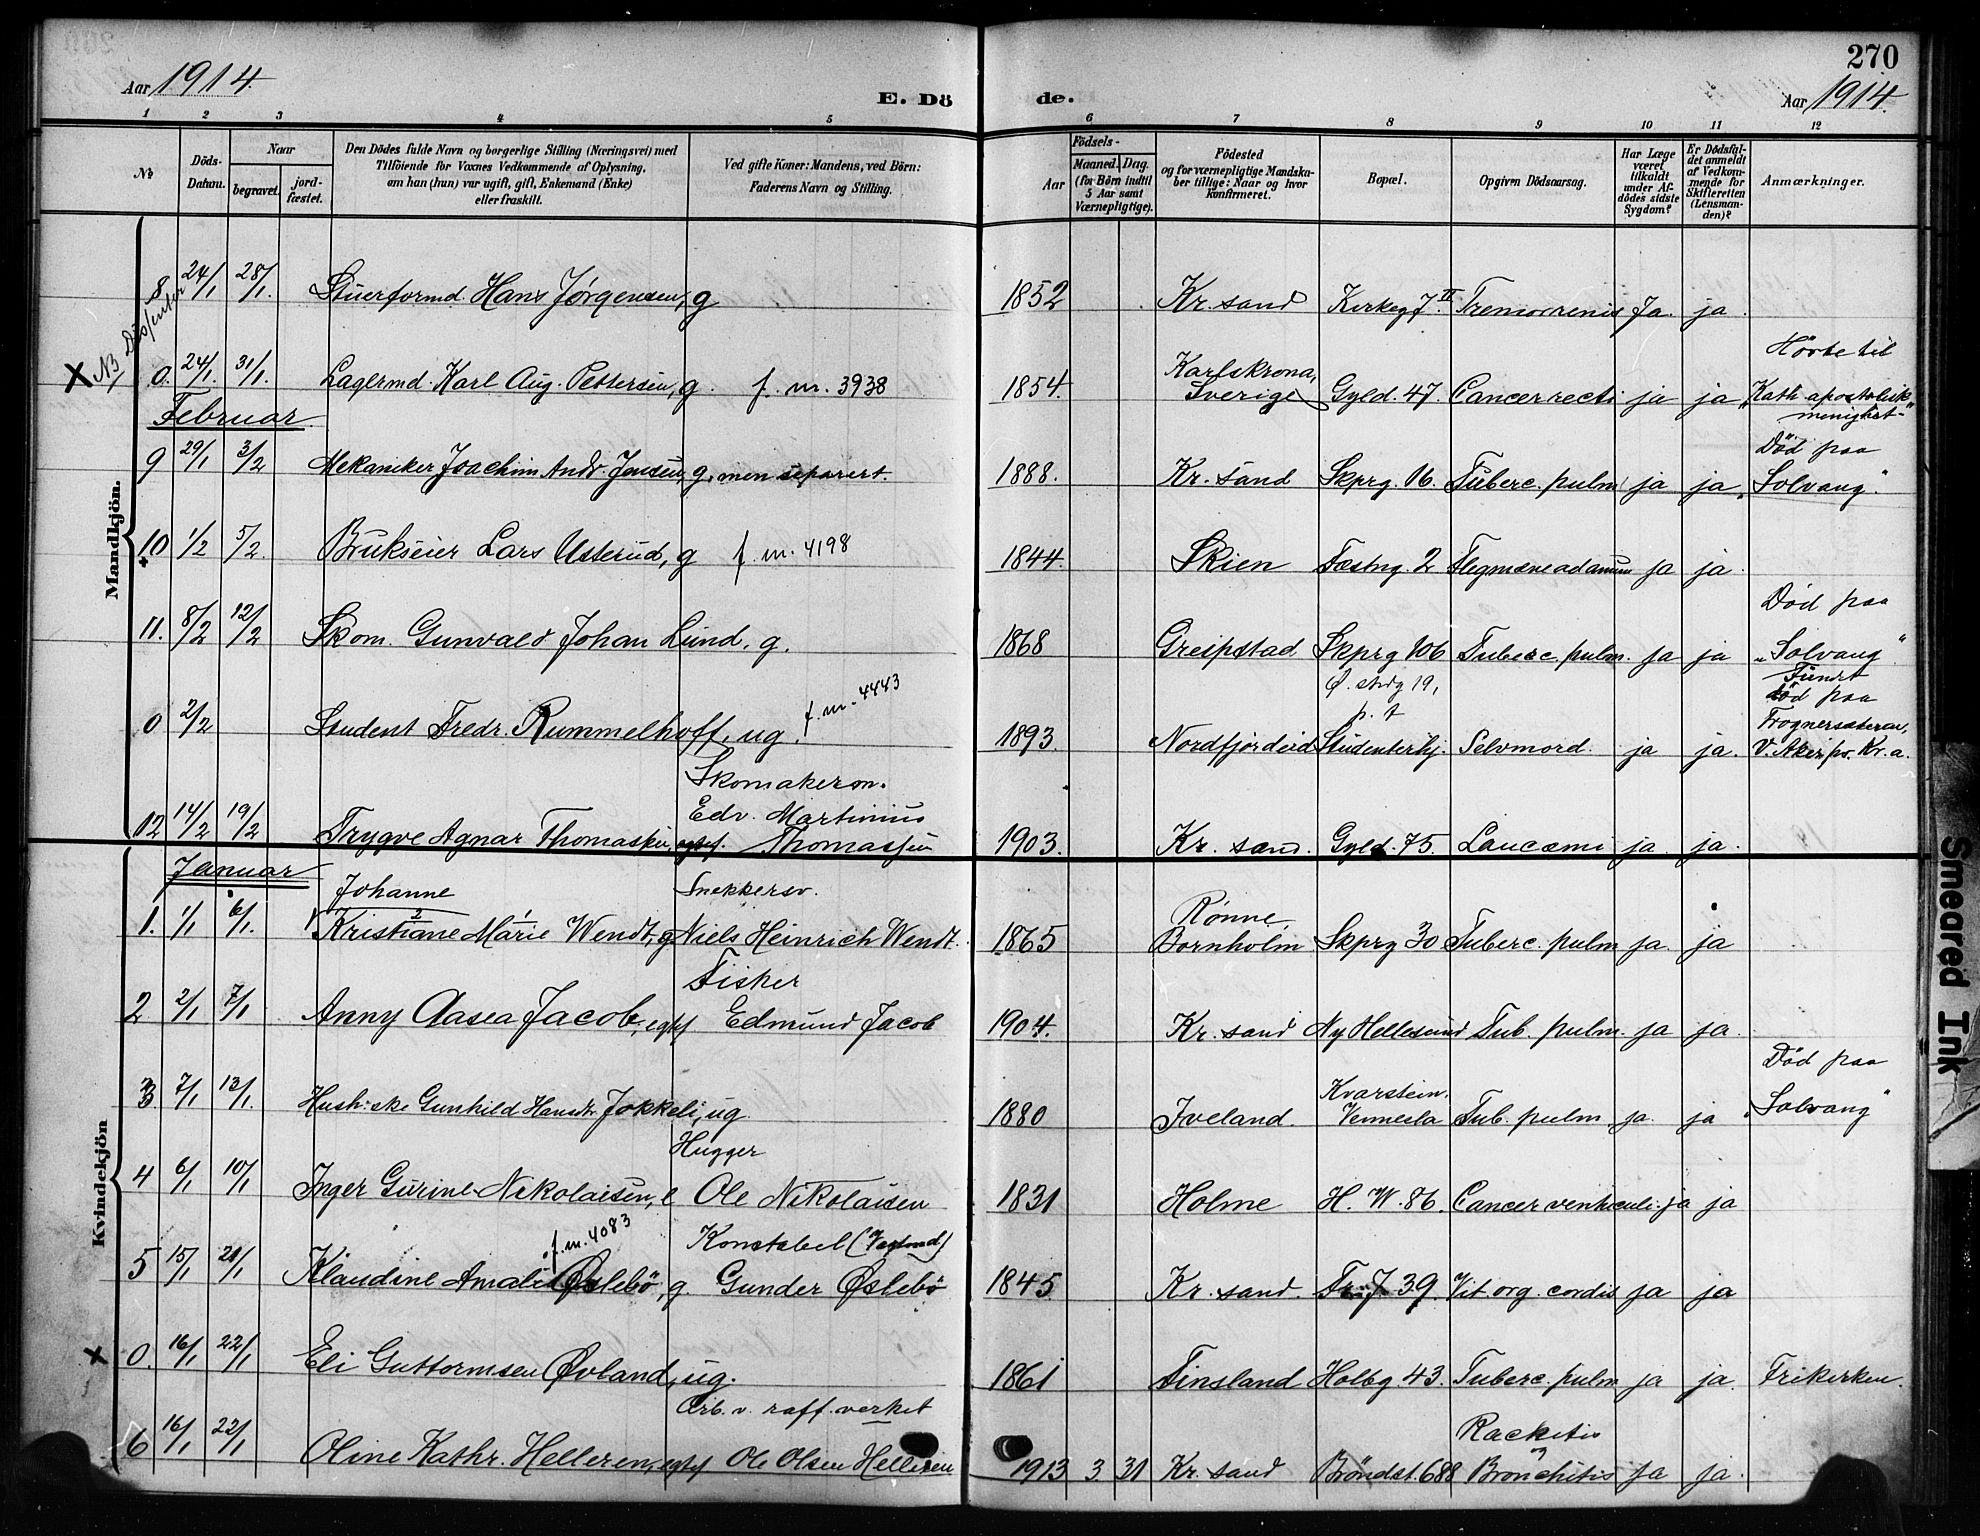 270
Aar 1914. E. Dö de. Aar 1914.
1 2 3 4 5 6 7 8 9 10 11 12
№ Döds-Datum. Naar begravet. jord-fæstet. Den Dödes fulde Navn og borgerlige Stilling (Næringsvei) med Tilföiende for Voxnes Vedkommende af Oplysning, om han (hun) var ugift, gift, Enkemand (Enke) eller fraskilt. Ved gifte Koner: Mandens, ved Börn: Faderens Navn og Stilling. Födsels- Aar Maaned. Dag. (for Börn indtil 5 Aar samt Værnepligtige). Födested og for værnepligtige Mandska-ber tillige: Naar og hvor konfirmeret. Bopæl. Opgiven Dödsaarsag. Har Læge været tilkaldt under Af-dödes sidste Sygdom? Er Dödsfal-det anmeldt af Vedkom-mende for Skifteretten (Lensman-den)? Anmærkninger.
Mandkjön.
8. 24/1 28/1. Stuerformd. Hans Jørgensen, g 1852 Kr. sand Kirkeg 7 II Tremor renis Ja. ja
X NB Dissenter
0. 24/1. 31/1. Lagermd. Karl Aug. Pettersen, g. f. m. 3938 1854. Karlskrona, Sverige Gyld. 47. Cancer recti ja ja Hørte til "Kath. apostolisk menighet"
Februar
9 29/1 3/2 Mekaniker Joachim Andr. Jensen, g. men separert. 1888. Kr. sand Skprg. 16. Tuberc. pulm ja ja Död paa "Solvang".
10 1/2 5/2. Brukseier Lars Usterud, g f. m. 4198 1844. Skien Fæstng. 2 ja ja
11. 8/2 12/2 Skom. Gunvald Johan Lund, g. 1868 Greipstad Skprg 106 Tuberc pulm. ja ja Död paa "Solvang".
0 2/2 Student Fredr. Rummelhoff, ug. f. m. 4443 1893. Nordfjordeid Ø. strdg 19, p. t Studenterhj. Selvmord. ja ja. Fundet död paa Frognersæteren, V. Aker pr. Kr.a.
12 14/2 19/2 Trygve Agnar Thomassen, egtef. Skomakersv. Edv. Martinius Thomassen 1903. Kr. sand. Gyld. 75. Leucæmi ja. ja.
Kvindekjön
Januar
1. 1/1 6/1. Johanne Kristiane Marie Wendt, g Snekkersv. Niels Heinrich Wendt. 1865 Rønne Bornholm Skprg 30 Tuberc. pulm ja. ja
2 2/1 7/1 Anny Aasea Jacob, egtef Fisker Edmund Jacob 1904. Kr. sand Ny Hellesund Tub. pulm. ja ja.
3 7/1 13/1. Hush:ske Gunhild Hansdtr Jokkeli, ug 1880 Iveland. Kvarstein, Vennesla Tub. pulm. ja. ja Död paa "Solvang"
4 6/1 10/1 Inger Gurine Nikolaisen, e Hugger Ole Nikolaisen 1831 Holme H. W. 86. Cancer ventriculi. ja ja
5 15/1 21/1 Klaudine Amalie Øslebö, g. f. m. 4083 Konstabel (Vagtmd) Gunder Øslebö 1845 Kr. sand. Fr. 7 39. Vit. org. cordis ja ja
X
0. 16/1 22/1 Eli Guttormsen Øvland, ug. 1861 Finsland Holbg. 43. Tuberc. pulm ja ja. Frikirken.
6 16/1 22/1 Oline Kathr. Helleren, egtef Arb. v. raff. verket Ole Olsen Helleren 1913 3 31 Kr. sand Bröndst. 688 Rackitis og Bronchitis ja ja.
Smeared Ink